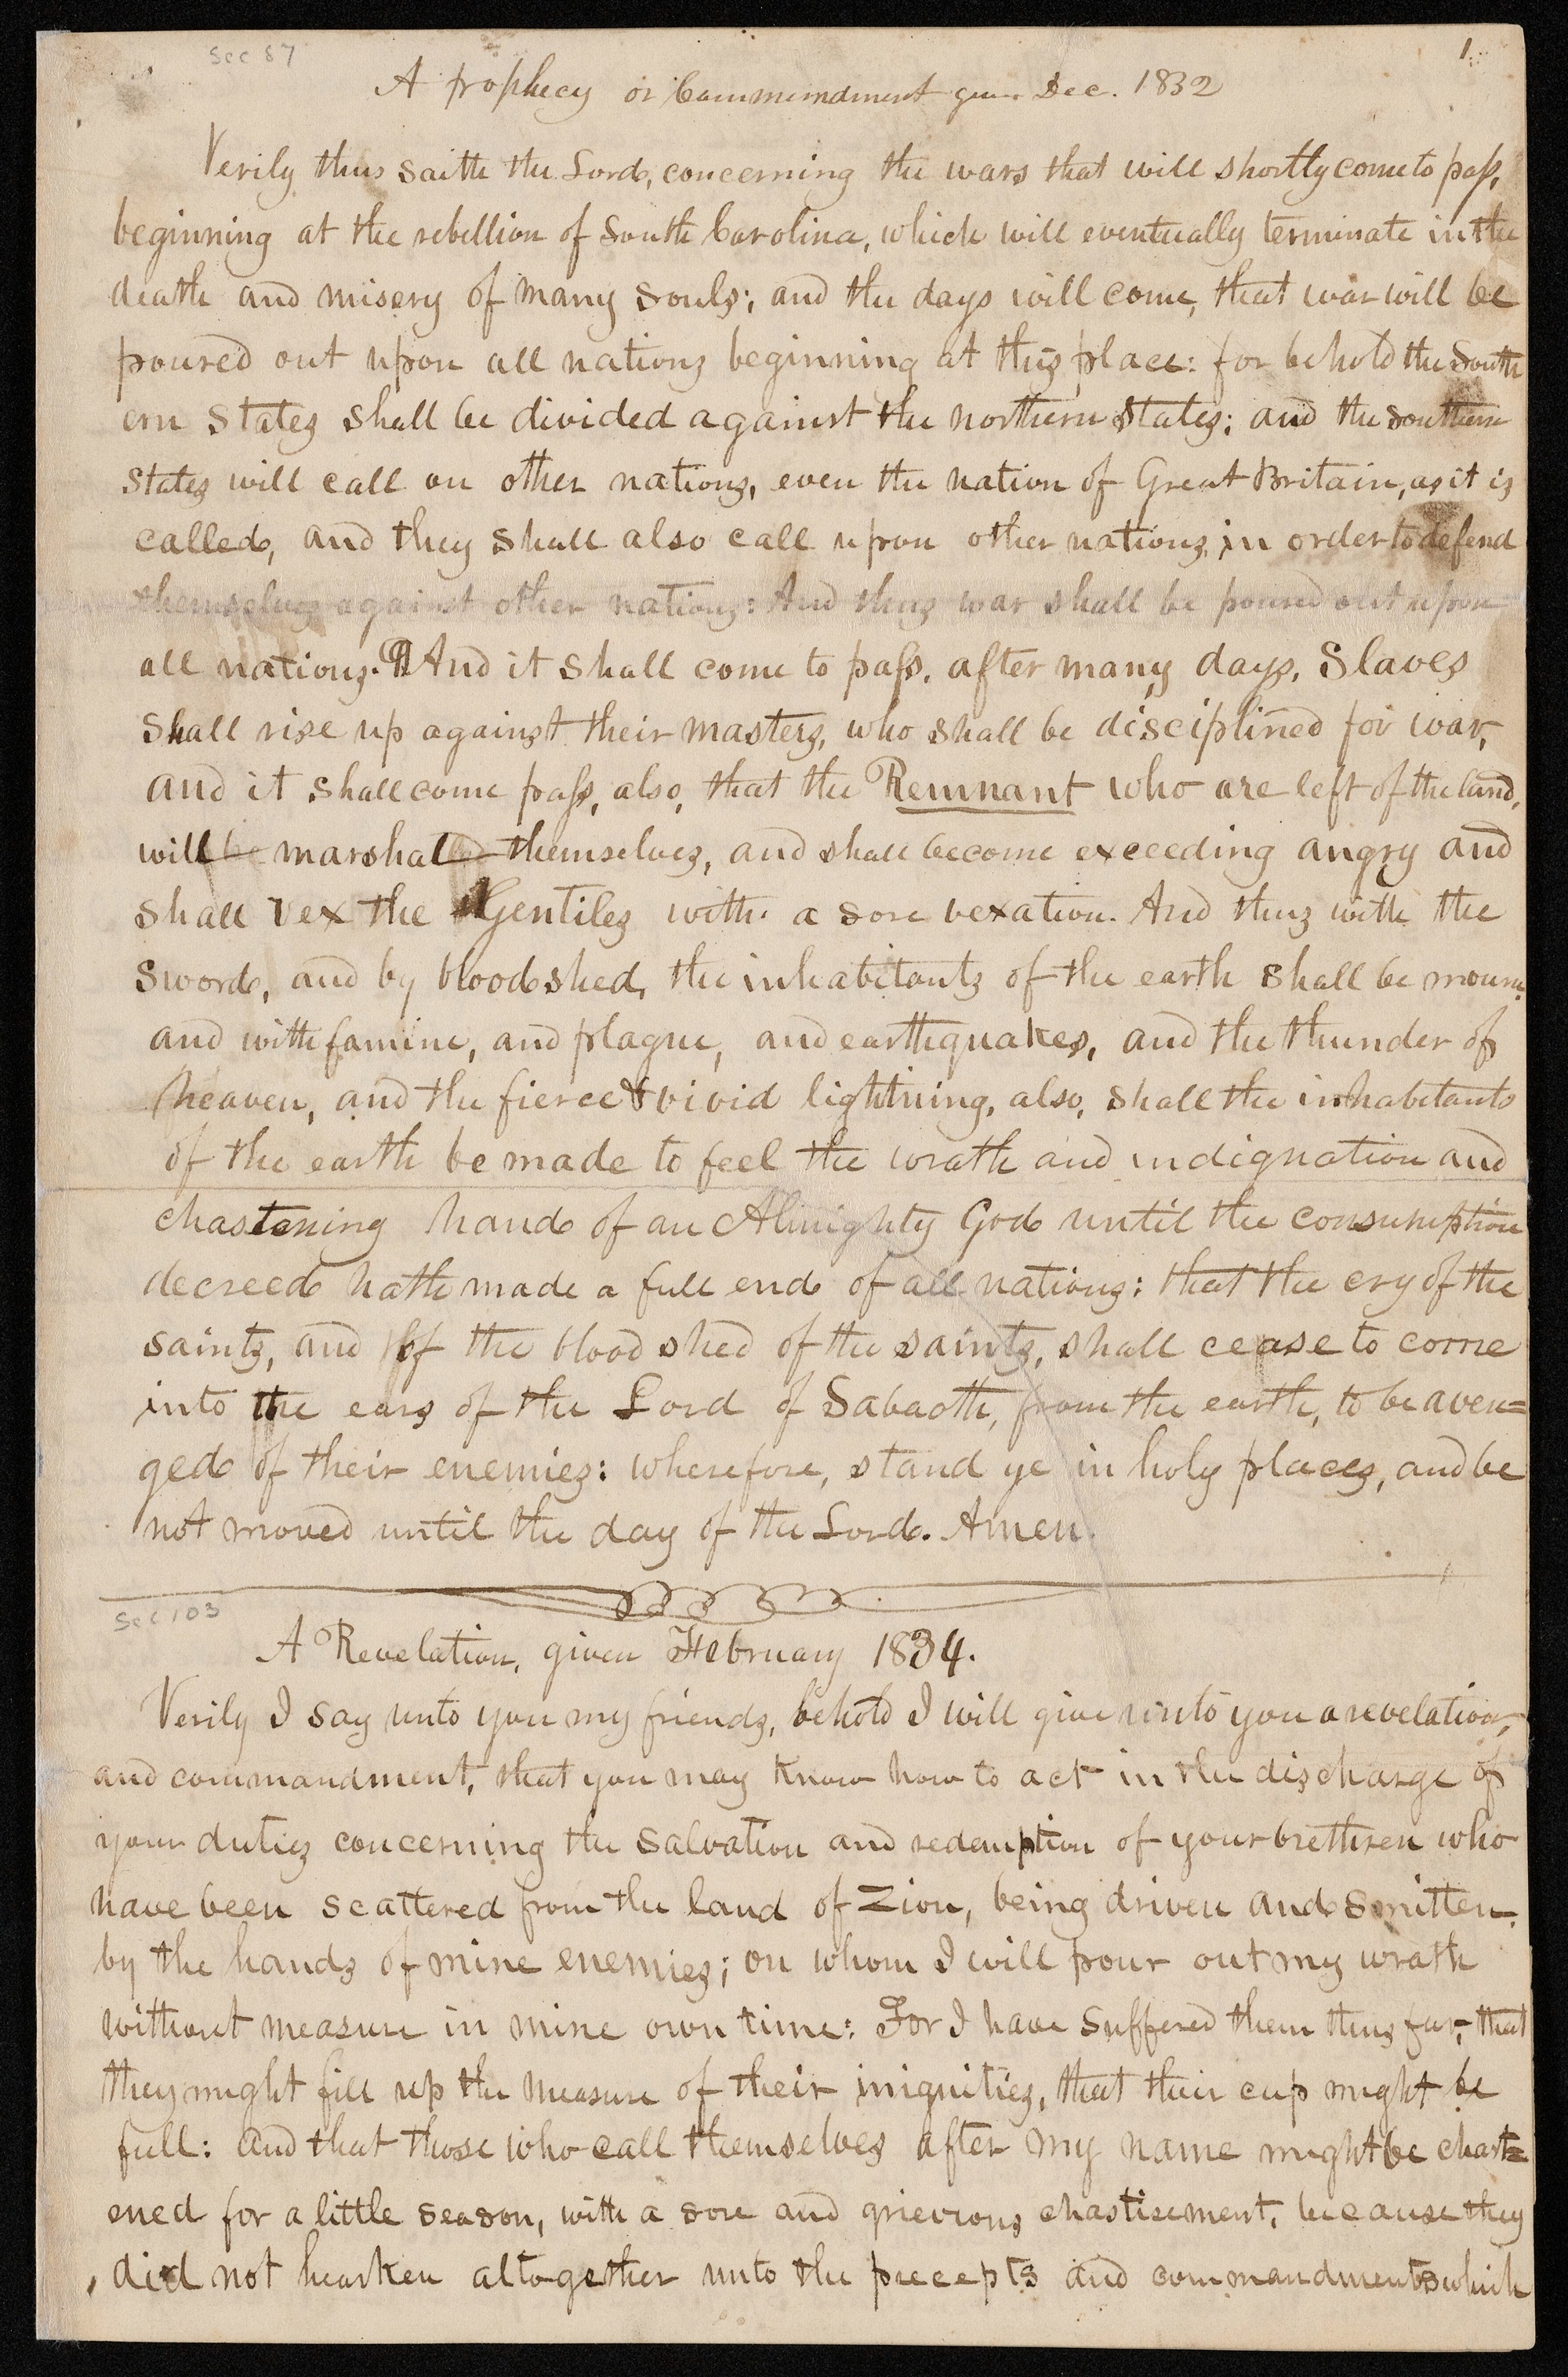 Sec 87
1.
A prophecy or Commmndment given Dec. 1832
Verily thus saith the Lord, concerning the wars that will shortly come to pass,
beginning at the rebellion of South Carolina, which will eventually terminate in the
death and misery of many souls; and the days will come, that war will be
poured out upon all nations beginning at this place: for behold the South
ern States shall be divided against the northern States; and the southern
states will call on other nations, even the nation of Great Britain, as it is
called, and they shall also call upon other nations, in order to defend
themselves against other nations: And thus war shall be poured out upon
all nations. ¶ And it shall come to pass, after many days, Slaves
shall rise up against their masters, who shall be disciplined for war,
and it shall come pass, also, that the Remnant who are left of the land,
will be marshaled themselves, and shall become exceeding angry and
shall vex the Gentiles with a sore vexation. And thus with the
sword, and by bloodshed, the inhabitants of the earth shall be mourn.
and with famine, and plague, and earthquakes, and the thunder of
heaven, and the fierce & vivid lightning, also, shall the inhabitants
of the earth be made to feel the wrath and indignation and
chastening hand of an Almighty God until the consumption
decreed hath made a full end of all nations: that the cry of the
saints, and of the blood shed of the saints, shall cease to come
into the ears of the Lord of Sabaoth, from the earth, to be aven=
ged of their enemies: wherefore, stand ye in holy places, and be
not moved until the day of the Lord. Amen.
Sec 103
A Revelation, given February 1834.
Verily I say unto you my friends, behold I will give unto you a revelation,
and commandment, that you may know how to act in the discharge of
your duties concerning the salvation and redemption of your brethren who
have been scattered from the land of Zion, being driven and smitten
by the hands of mine enemies; on whom I will pour out my wrath
without measure in mine own time: For I have suffered them thus far, that
they might fill up the measure of their iniquities, that their cup might be
full: and that those who call themselves after my name might be chast=
ened for a little season, with a sore and grievious chastisement, because they
did not hearken altogether unto the precepts and commandments which